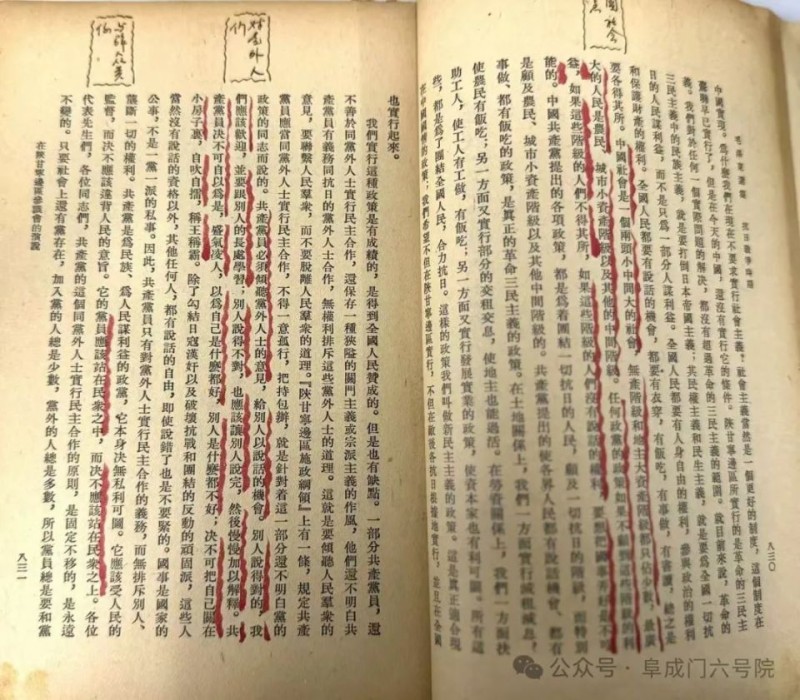 毛澤東選集　抗日戰爭時期
八三〇
國社會
中國實現。爲什麼我們在現在不要求實行社會主義？社會主義當然是一個更好的制度，這個制度在
蘇聯早已實行了，但是在今天的中國，還沒有實行它的條件。陝甘寧邊區所實行的是革命的三民主
義。我們對於任何一個實際問題的解決，都沒有超過革命的三民主義的範圍。就目前來說，革命的
三民主義中的民族主義，就是要打倒日本帝國主義；其民權主義和民生主義，就是要爲全國一切抗
日的人民謀利益，而不是只爲一部分人謀利益。全國人民都要有人身自由的權利，參與政治的權利
和保護財產的權利。全國人民都要有說話的機會，都要有衣穿，有飯吃，有事做，有書讀，總之是
要各得其所。中國社會是一個兩頭小中間大的社會，無產階級和地主大資產階級都只佔少數，最廣
大的人民是農民、城市小資產階級以及其他的中間階級。任何政黨的政策如果不顧到這些階級的利
益，如果這些階級的人們不得其所，如果這些階級的人們沒有說話的權利，要想把國事弄好是不可
能的。中國共產黨提出的各項政策，都是爲着團結一切抗日的人民，顧及一切抗日的階級，而特別
是顧及農民、城市小資產階級以及其他中間階級的。共產黨提出的使各界人民都有說話機會、都有
事做、都有飯吃的政策，是眞正的革命三民主義的政策。在土地關係上，我們一方面實行減租減息，
使農民有飯吃；另一方面又實行部分的交租交息，使地主也能過活。在勞資關係上，我們一方面扶
助工人，使工人有工做，有飯吃；另一方面又實行發展實業的政策，使資本家也有利可圖。所有這
些，都是爲了團結全國人民，合力抗日。這樣的政策我們叫做新民主主義的政策。這是眞正適合現
在中國國情的政策；我們希望不但在陝甘寧邊區實行，不但在敵後各抗日根據地實行，並且在全國
黨外人
也實行起來。
我們實行這種政策是有成績的，是得到全國人民贊成的。但是也有缺點。一部分共產黨員，還
不善於同黨外人士實行民主合作，還保存一種狹隘的關門主義或宗派主義的作風，他們還不明白共
產黨員有義務同抗日的黨外人士合作，無權利排斥這些黨外人士的道理。這就是要傾聽人民羣衆的
意見，要聯繫人民羣衆，而不要脫離人民羣衆的道理。『陝甘寧邊區施政綱領』上有一條，規定共產
黨員應當同黨外人士實行民主合作，不得一意孤行，把持包辦，就是針對着這一部分還不明白黨的
政策的同志而說的。共產黨員必須傾聽黨外人士的意見，給別人以說話的機會。別人說得對的，我
們應該歡迎，並要跟別人的長處學習；別人說得不對，也應該讓別人說完，然後慢慢加以解釋。共
產黨員決不可自以爲是，盛氣凌人，以爲自己是什麼都好，別人是什麼都不好；決不可把自己關在
小房子裏，自吹自擂，稱王稱霸。除了勾結日寇漢奸以及破壞抗戰和團結的反動的頑固派，這些人
當然沒有說話的資格以外，其他任何人，都有說話的自由，即使說錯了也是不要緊的。國事是國家的
公事，不是一黨一派的私事。因此，共產黨員只有對黨外人士實行民主合作的義務，而無排斥別人、
壟斷一切的權利。共產黨是爲民族、爲人民謀利益的政黨，它本身決無私利可圖。它應該受人民的
監督，而決不應該違背人民的意旨。它的黨員應該站在民衆之中，而決不應該站在民衆之上。各位
代表先生們，各位同志們，共產黨的這個同黨外人士實行民主合作的原則，是固定不移的，是永遠
不變的。只要社會上還有黨存在，加入黨的人總是少數，黨外的人總是多數，所以黨員總是要和黨
在陝甘寧邊區參議會的演說
八三一
公众号 · 阜成门六号院